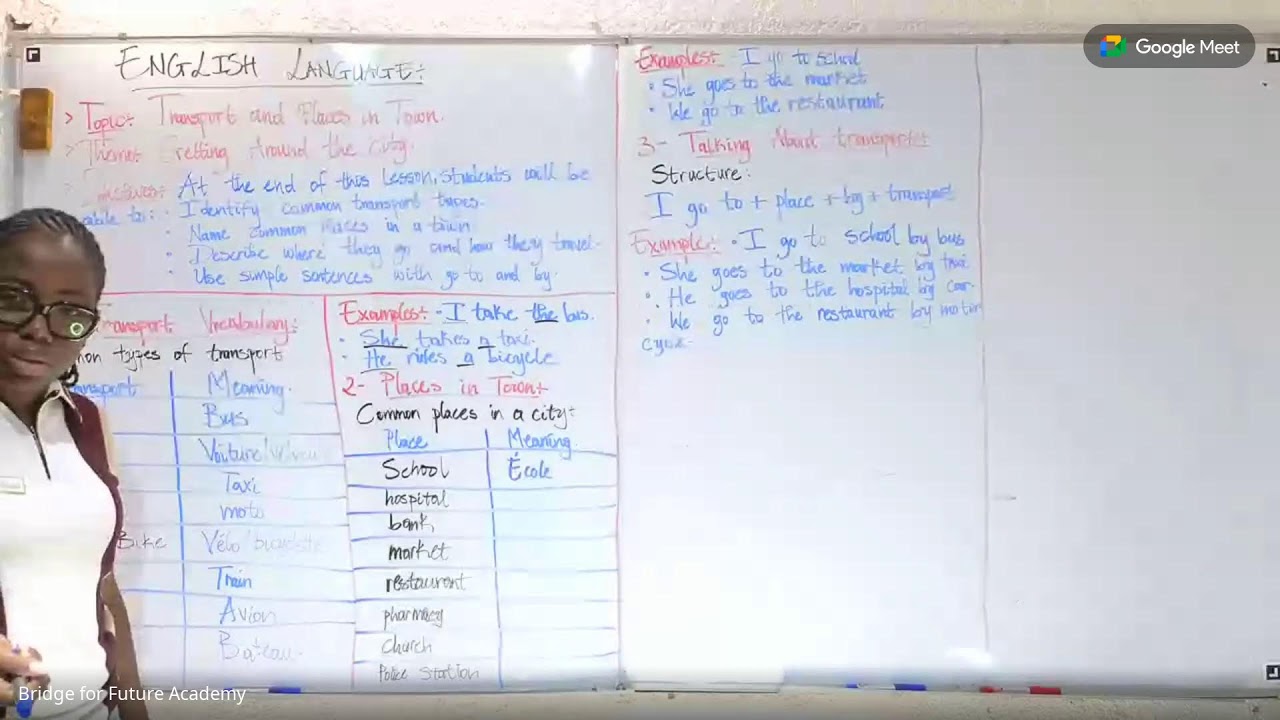 ENGLISH LANGUAGE:
> Topic: Transport and Places in Town.
> Theme: Getting Around the city.
At the end of this Lesson, students will be
able to: • Identify common transport types.
• Name common places in a town
• Describe where they go and how they travel.
• Use simple sentences with go to and by.
Transport Vocabulary:
types of transport
Meaning.
Bus
Voiture
Taxi
moto
Bike Vélo
Train
Avion
Bateau.
Examples: - I take the bus.
• She takes a taxi.
• He rides a bicycle
2- Places in Town:
Common places in a city:
Place Meaning.
School École
hospital
bank
market
restaurent
pharmacy
church
Police station
Examples: - I go to school
• She goes to the market
• We go to the restaurant
3- Talking About
Structure:
I go to + place + by + transport
Example: • I go to school by bus
• She goes to the market by taxi
• He goes to the hospital by car
• We go to the restaurant by motor
Google Meet
Bridge for Future Academy